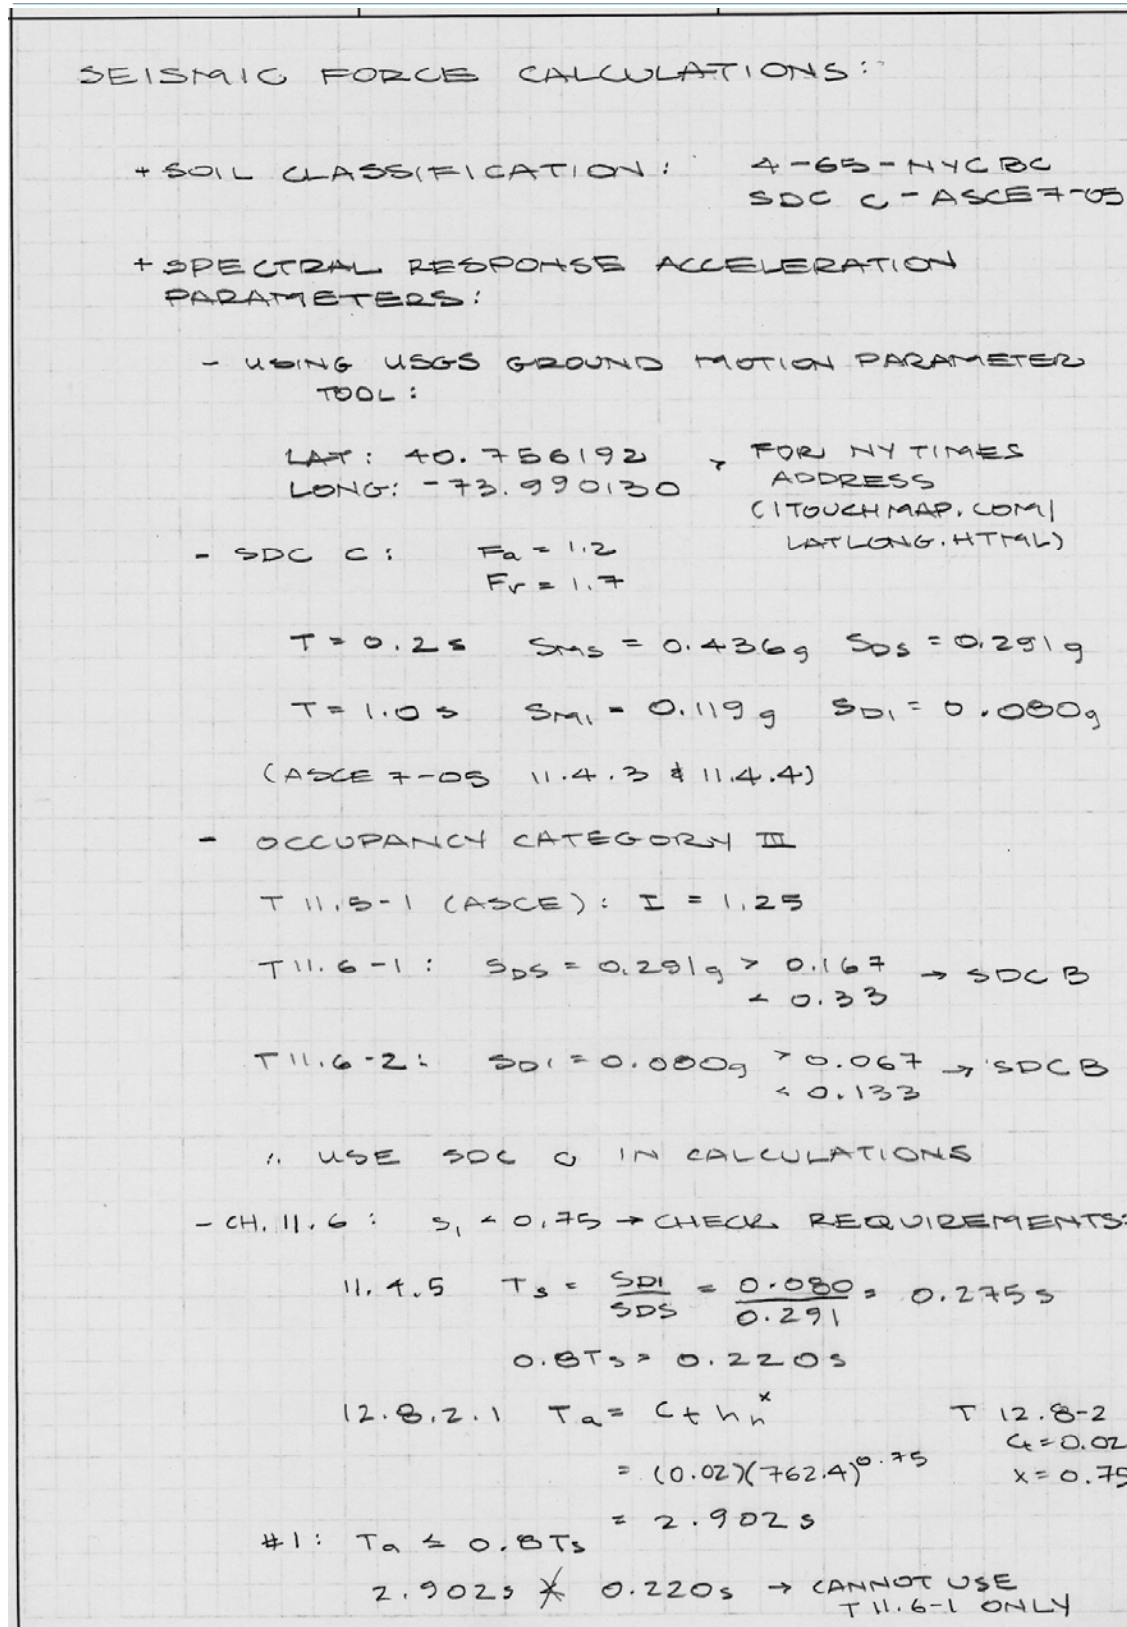 SEISMIC FORCE CALCULATIONS:
+ SOIL CLASSIFICATION: 4-65-NYCBC
SDC C - ASCE 7-05
+ SPECTRAL RESPONSE ACCELERATION
PARAMETERS:
- USING USGS GROUND MOTION PARAMETER
TOOL:
LAT: 40.756192 , FOR NY TIMES
LONG: -73.990130 ADDRESS
(ITOUCHMAP.COM/
LATLONG.HTML)
- SDC C: Fa = 1.2
Fv = 1.7
T = 0.2 s SMS = 0.436g SDS = 0.291g
T = 1.0 s SM1 = 0.119g SD1 = 0.080g
(ASCE 7-05 11.4.3 & 11.4.4)
- OCCUPANCY CATEGORY III
T 11.5-1 (ASCE): I = 1.25
T 11.6-1: SDS = 0.291g > 0.167 → SDC B
< 0.33
T 11.6-2: SD1 = 0.080g > 0.067 → SDC B
< 0.133
∴ USE SDC C IN CALCULATIONS
- CH. 11.6: S1 < 0.75 → CHECK REQUIREMENTS:
11.4.5 Ts = SD1/SDS = 0.080/0.291 = 0.275 s
0.8Ts = 0.220s
12.8.2.1 Ta = Ct hn^x T 12.8-2
Ct = 0.02
= (0.02)(762.4)^0.75 x = 0.75
= 2.902 s
#1: Ta ≤ 0.8Ts
2.902s ≮ 0.220s → CANNOT USE
T 11.6-1 ONLY